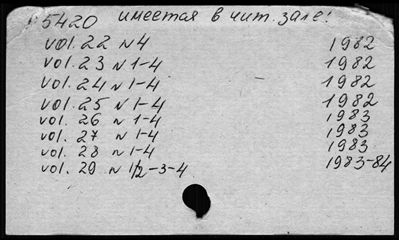 5420 имеется в чит. зале!
vol. 22 N 4 1982
vol. 23 N 1-4 1982
vol. 24 N 1-4 1982
vol. 25 N 1-4 1982
vol. 26 N 1-4 1983
vol. 27 N 1-4 1983
vol. 28 N 1-4 1983
vol. 29 N 1/2-3-4 1983-84